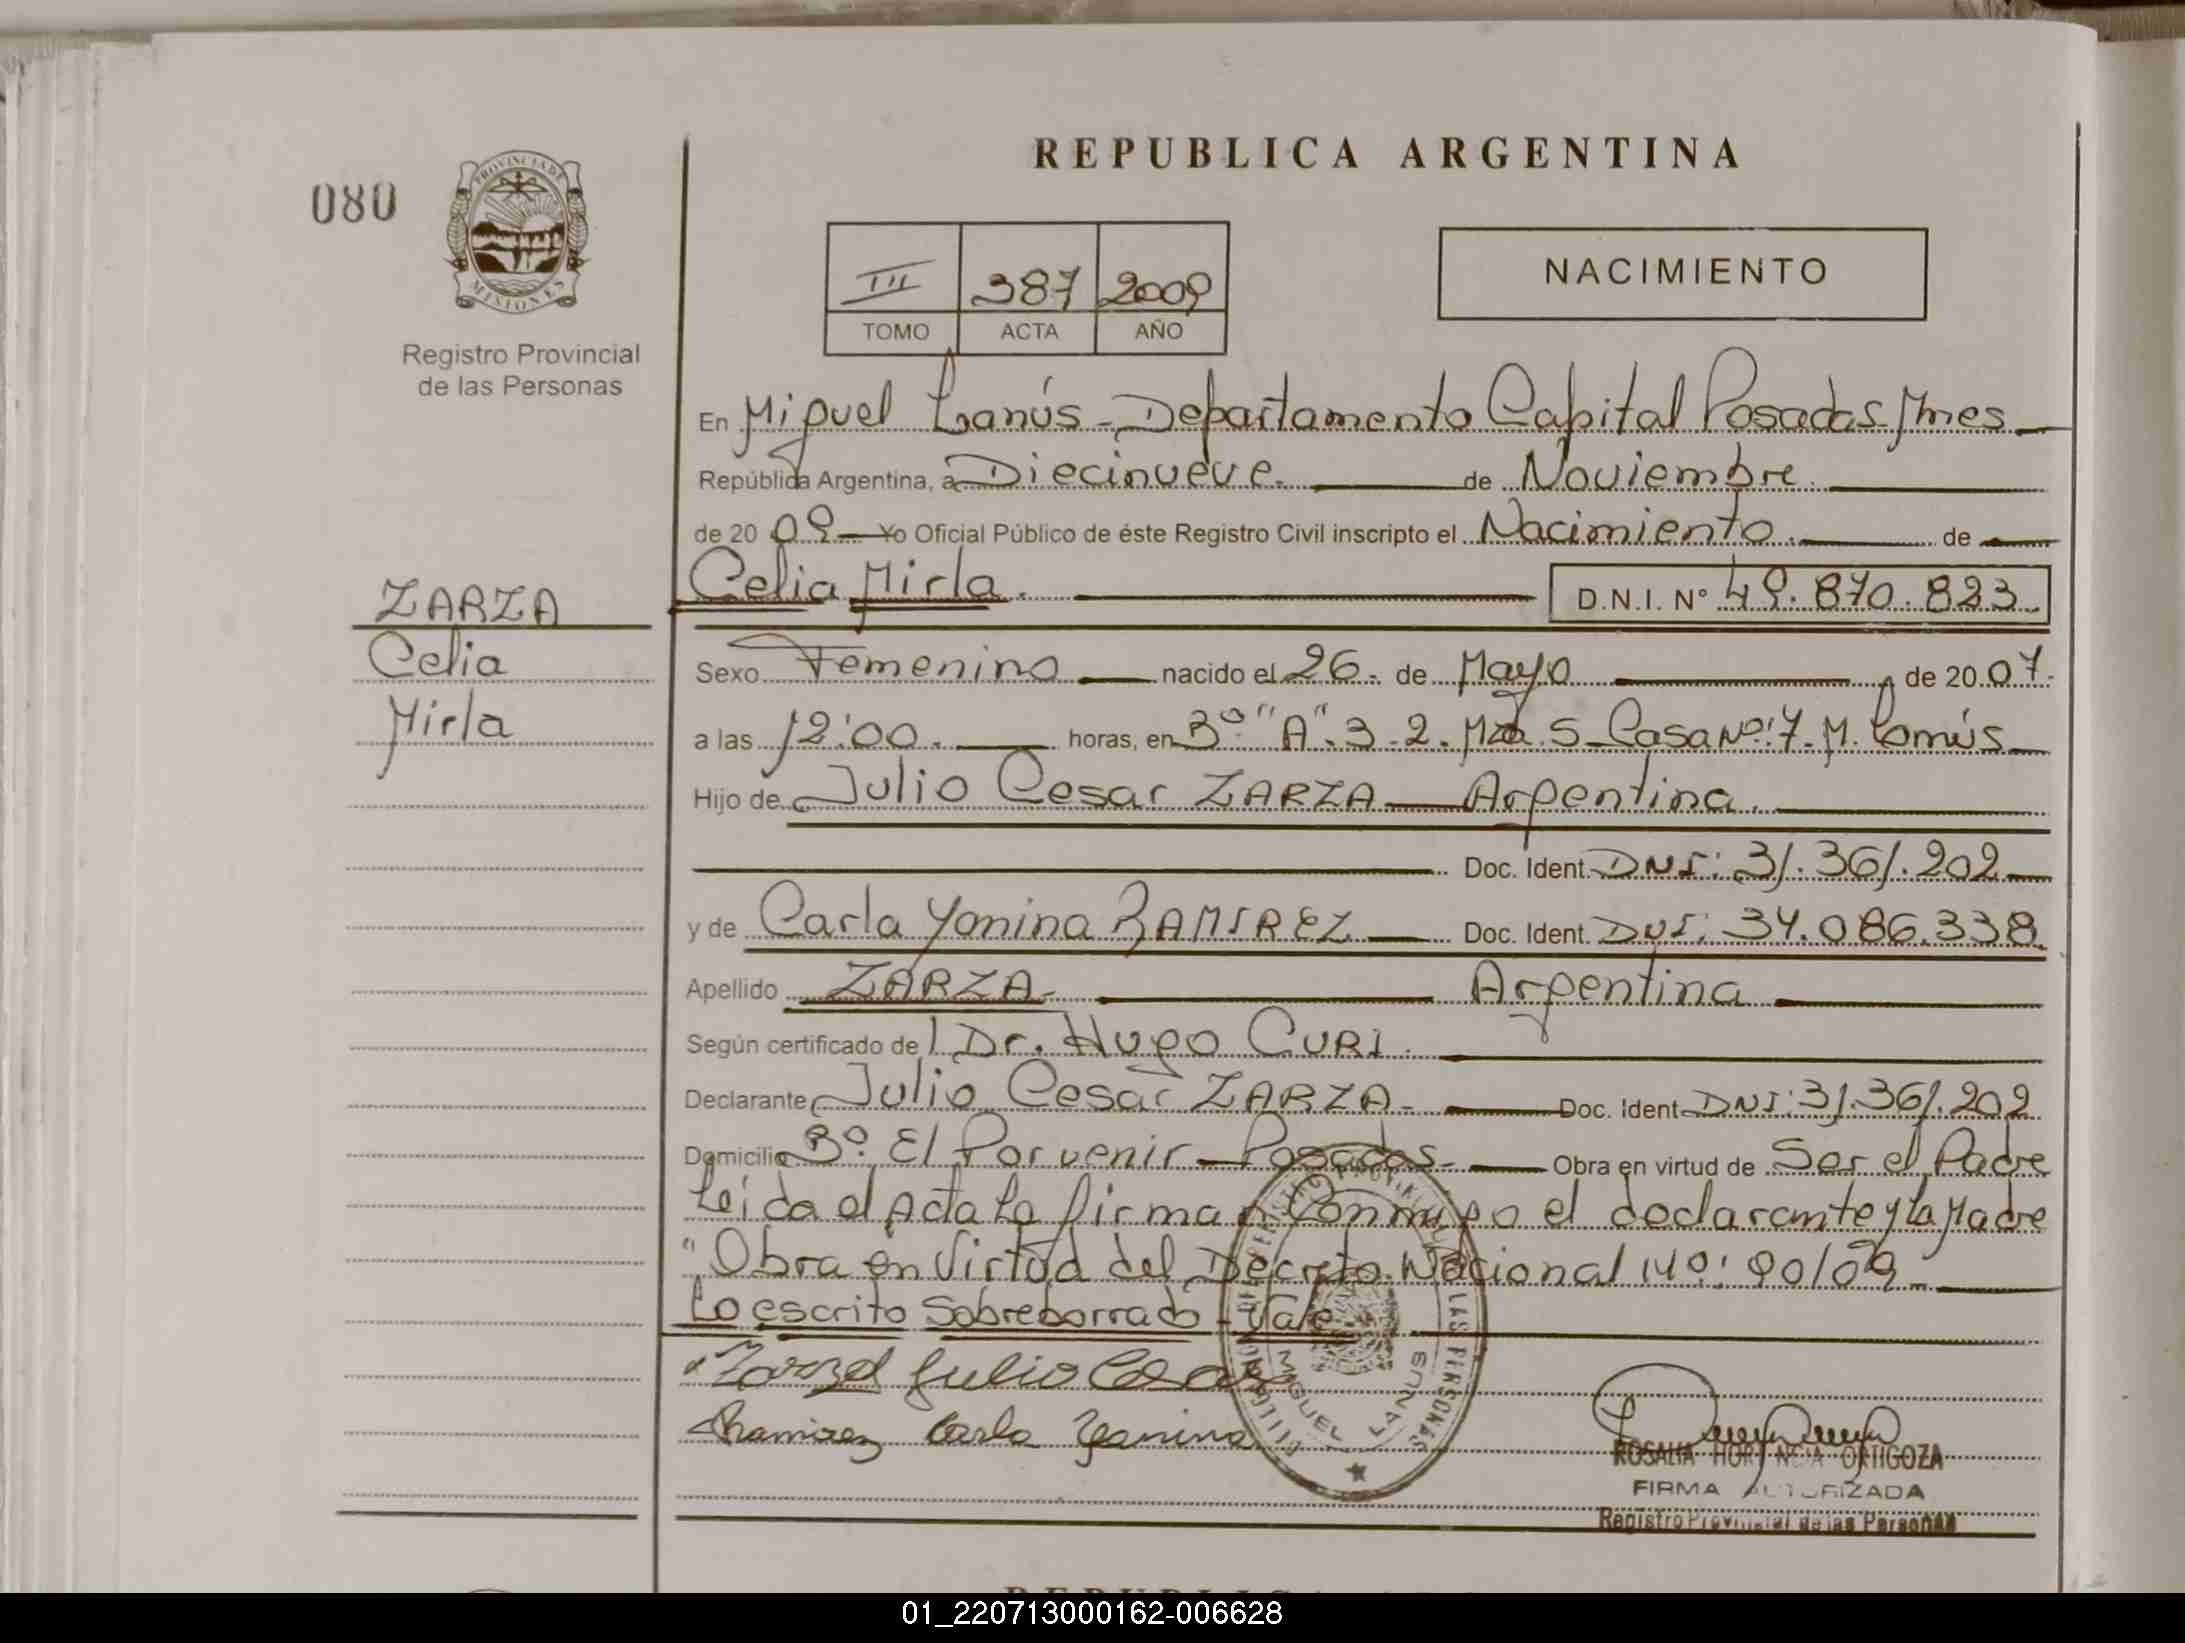 REPUBLICA ARGENTINA
080
PROVINCIA DE
MISIONES
Registro Provincial
de las Personas
III 387 2009
TOMO ACTA AÑO
NACIMIENTO
En Miguel Lanús - Departamento Capital Posadas Mnes
República Argentina, a Diecinueve de Noviembre
de 2009 Yo Oficial Público de éste Registro Civil inscripto el Nacimiento de
Celia Mirla. D.N.I. Nº 49.870.823
ZARZA
Celia
Mirla
Sexo Femenino nacido el 26 de Mayo de 2007
a las 12:00 horas, en Bº "A" 3-2. Mza. 5 - Casa Nº: 7 - M. Lanús
Hijo de Julio Cesar ZARZA Argentina
Doc. Ident. DNI: 31.361.202
y de Carla Yanina RAMIREZ Doc. Ident. DNI: 34.086.338
Apellido ZARZA Argentina
Según certificado de Dr. Hugo CURI
Declarante Julio Cesar ZARZA Doc. Ident. DNI: 31.361.202
Domicilio Bº El Porvenir - Posadas Obra en virtud de Ser el Padre
Leida el Acta La firman Conmigo el declarante y la Madre
"Obra en Virtud del Decreto Nacional Nº: 90/09
Lo escrito Sobreborrado - Vale
Zarza Julio Cesar
Ramirez Carla Yanina
MIGUEL LANUS
ROSALIA HORTENCIA ORTIGOZA
FIRMA AUTORIZADA
Registro Provincial de las Personas
01_220713000162-006628